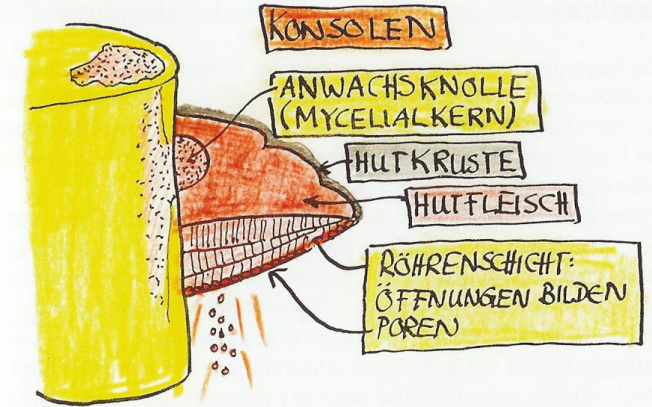 KONSOLEN
ANWACHSKNOLLE
(MYCELIALKERN)
HUTKRUSTE
HUTFLEISCH
RÖHRENSCHICHT:
ÖFFNUNGEN BILDEN
POREN